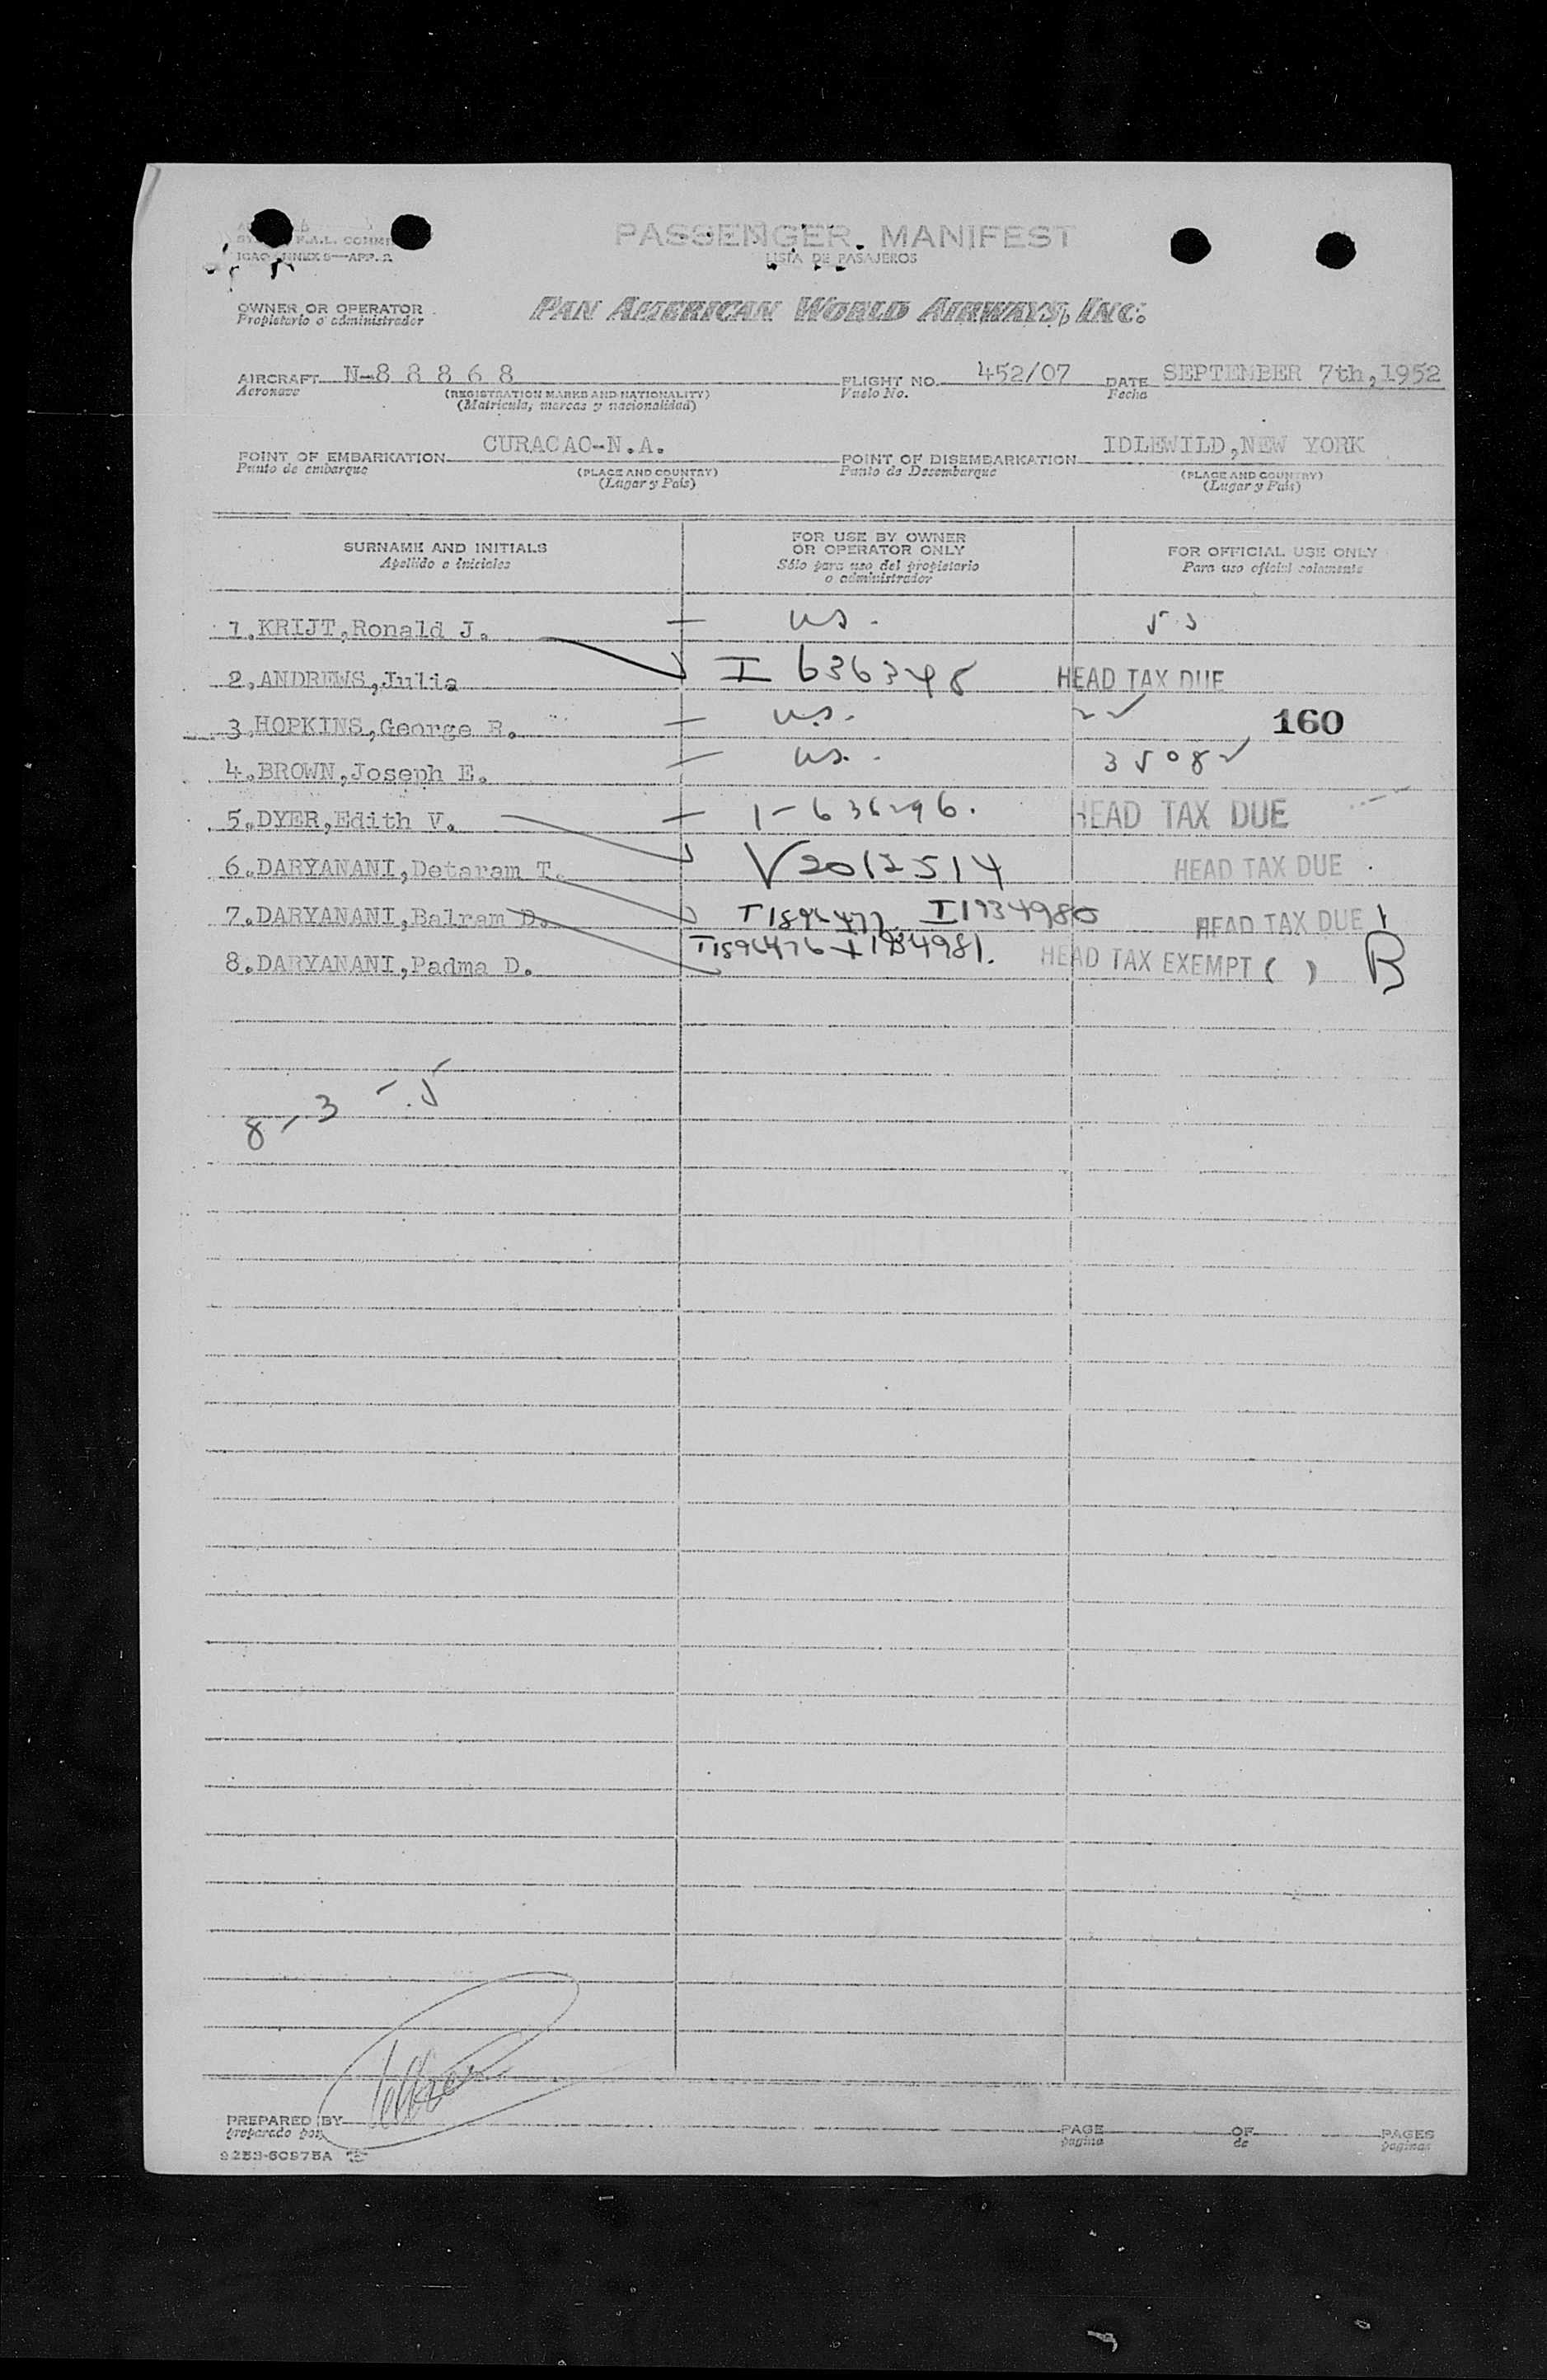 PASSENGER MANIFEST
LISTA DE PASAJEROS
F.A.L. COMMI
ICAO ANNEX 9—APP. 2
OWNER OR OPERATOR
Propietario o administrador
PAN AMERICAN WORLD AIRWAYS, INC.
AIRCRAFT N-8 8 8 6 8 FLIGHT NO. 452/07 DATE SEPTEMBER 7th,1952
Aeronave (REGISTRATION MARKS AND NATIONALITY) Vuelo No. Fecha
(Matricula, marcas y nacionalidad)
POINT OF EMBARKATION CURACAO-N.A. POINT OF DISEMBARKATION IDLEWILD,NEW YORK
Punto de embarque (PLACE AND COUNTRY) Punto de Desembarque (PLACE AND COUNTRY)
(Lugar y País) (Lugar y País)
SURNAME AND INITIALS
Apellido e iniciales
FOR USE BY OWNER
OR OPERATOR ONLY
Sólo para uso del propietario
o administrador
FOR OFFICIAL USE ONLY
Para uso oficial solamente
1.KRIJT,Ronald J. — us.
2.ANDREWS,Julia I 636348 HEAD TAX DUE
3.HOPKINS,George R. — us. 160
4.BROWN,Joseph E. — us.
5.DYER,Edith V. — I-636296. HEAD TAX DUE
6.DARYANANI,Detaram T. V2012514 HEAD TAX DUE
7.DARYANANI,Balram D. T1896477 I1934980 HEAD TAX DUE
8.DARYANANI,Padma D. T1896476 I1934981. HEAD TAX EXEMPT ( ) B
8-3-5
PREPARED BY PAGE OF PAGES
preparado por pagina de paginas
9253-60975A